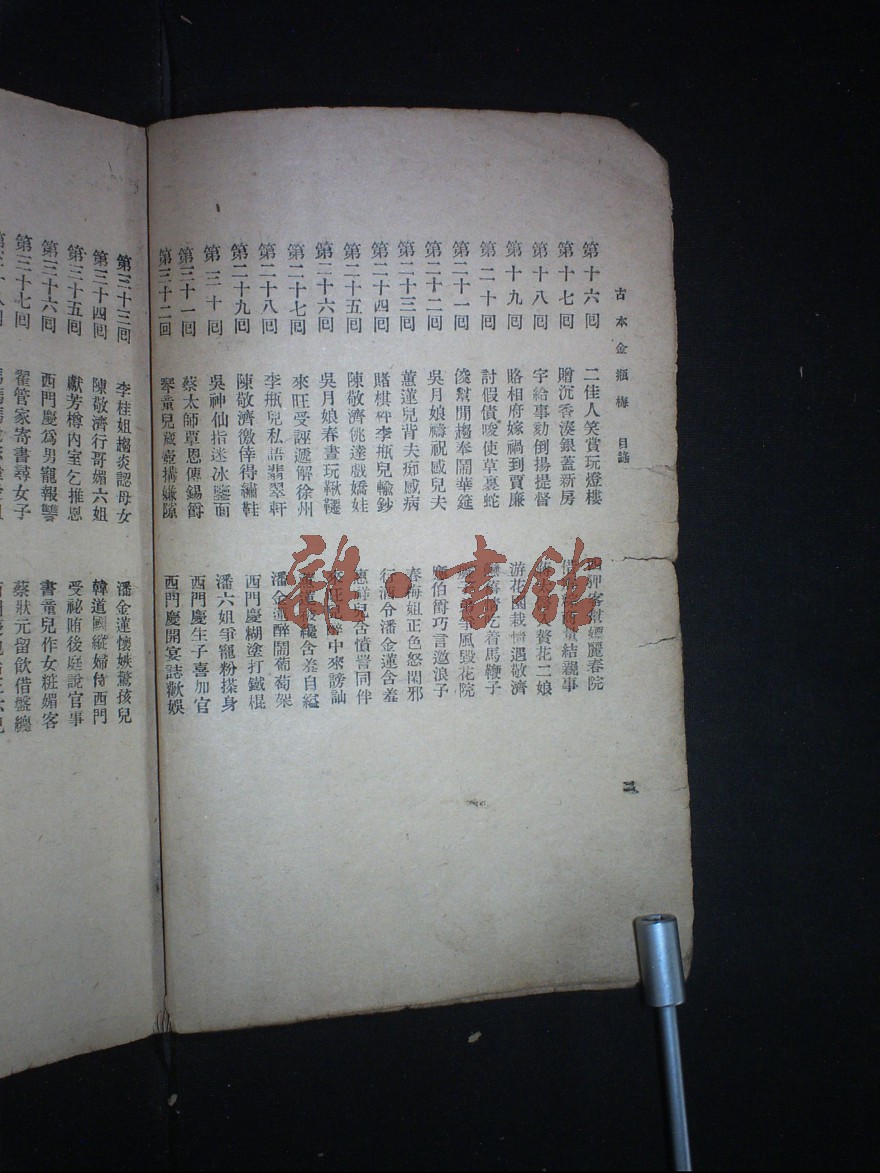 古本金瓶梅 目錄
第十六回 二佳人笑賞玩燈樓 客幫嫖麗春院
第十七回 贈沉香湊銀蓋新房 結親事
第十八回 宇給事劾倒揚提督 贅花二娘
第十九回 賂相府嫁禍到賈廉 游花園栽情遇敬濟
第二十回 討假債唆使草裏蛇 乞着馬鞭子
第二十一回 俊幫閒趨奉鬧華筵 風毀花院
第二十二回 吳月娘禱祝感兒夫 應伯爵巧言邀浪子
第二十三回 蕙蓮兒背夫痴感病 春梅姐正色怒閑邪
第二十四回 賭棋枰李瓶兒輸鈔 行酒令潘金蓮含羞
第二十五回 陳敬濟佻達戲嬌娃 惠祥兒含憤詈同伴
第二十六回 吳月娘春晝玩鞦韆 來旺兒醉中來謗訕
第二十七回 來旺受誣遞解徐州 含羞自縊
第二十八回 李瓶兒私語翡翠軒 潘金蓮醉鬧葡萄架
第二十九回 陳敬濟徼倖得繡鞋 西門慶糊塗打鐵棍
第三十回 吳神仙指迷冰鑒面 潘六姐爭寵粉搽身
第三十一回 蔡太師覃恩傳錫爵 西門慶生子喜加官
第三十二回 琴童兒藏壺搆嫌隙 西門慶開宴誌歡娛
三
第三十三回 李桂姐趨炎認母女 潘金蓮懷嫉驚孩兒
第三十四回 陳敬濟行哥媚六姐 韓道國縱婦侍西門
第三十五回 獻芳樽內室乞推恩 受祕賄後庭說官事
第三十六回 西門慶為男寵報讐 書童兒作女粧媚客
第三十七回 翟管家寄書尋女子 蔡狀元留飲借盤纏
雜·書館